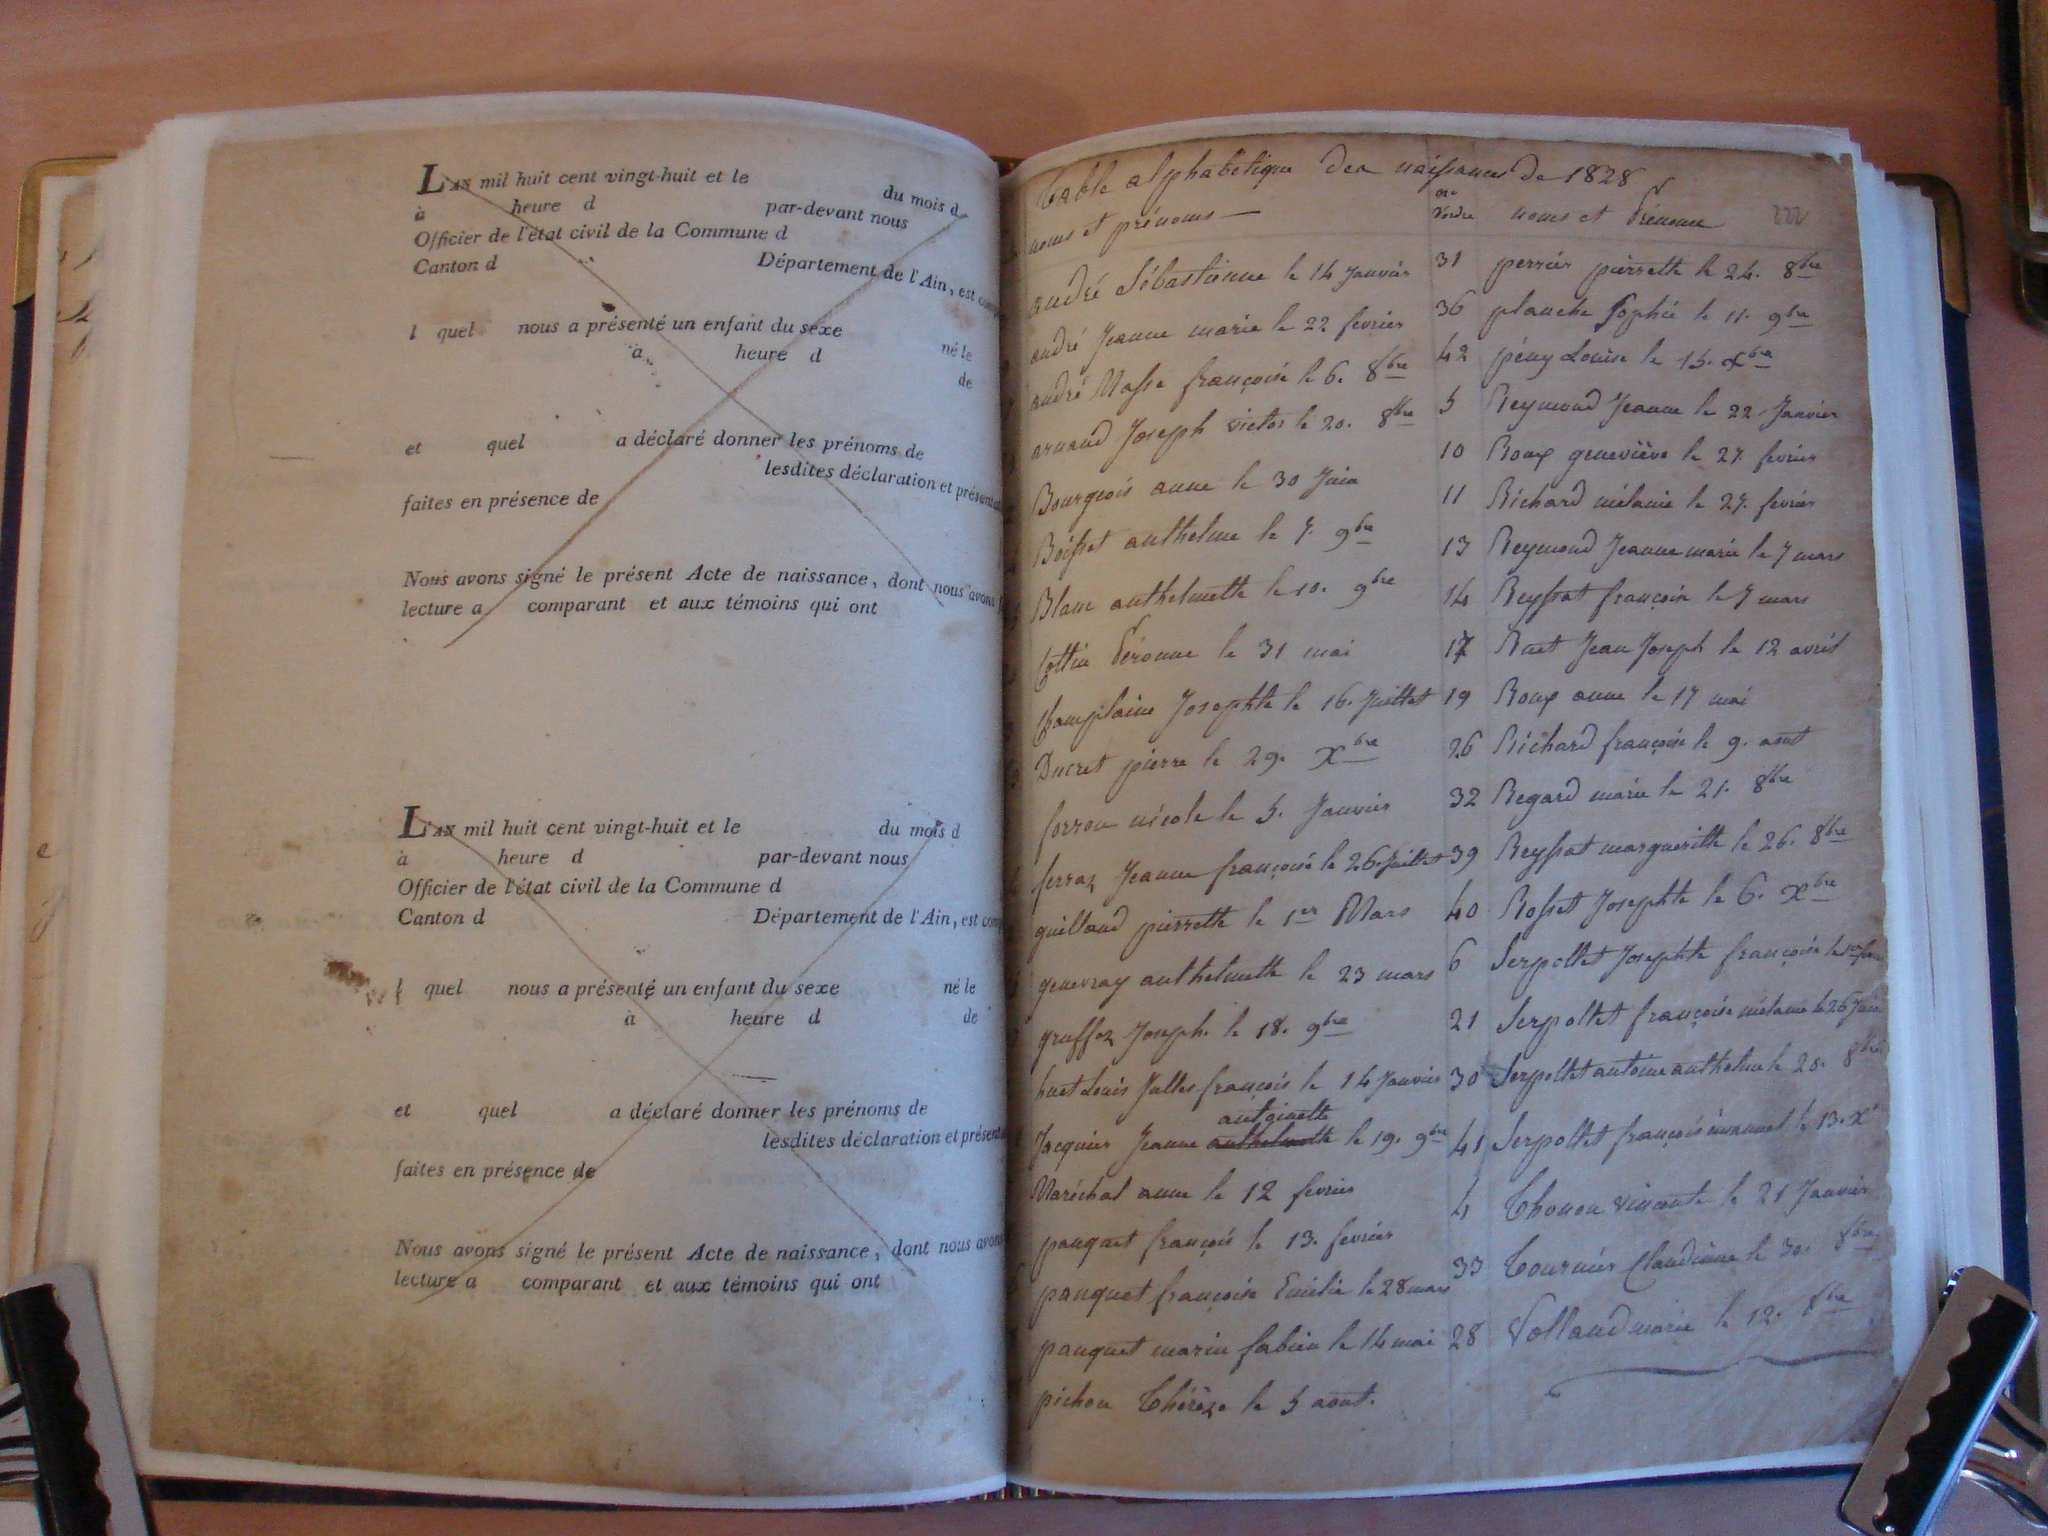 L'AN mil huit cent vingt-huit et le du mois d
à heure d par-devant nous
Officier de l'état civil de la Commune d
Canton d Département de l'Ain, est
l quel nous a présenté un enfant du sexe né le
à heure d de
et quel a déclaré donner les prénoms de
lesdites déclaration et
faites en présence de
Nous avons signé le présent Acte de naissance, dont nous avons
lecture a comparant et aux témoins qui ont
L'AN mil huit cent vingt-huit et le du mois d
à heure d par-devant nous
Officier de l'état civil de la Commune d
Canton d Département de l'Ain, est
l quel nous a présenté un enfant du sexe né le
à heure d de
et quel a déclaré donner les prénoms de
lesdites déclaration et
faites en présence de
Nous avons signé le présent Acte de naissance, dont nous avons
lecture a comparant et aux témoins qui ont
Table alphabetique des naissances de 1828
noms et prénoms
andré Sébastienne le 14 Janvier
andré Jeanne marie le 22 fevrier
andré Masse françoise le 6. 8bre
arnaud Joseph victor le 20. 8bre
Bourgeois anne le 30 Juin
Boisset anthelme le 7. 9bre
Blanc anthelmette le 10. 9bre
Cottin Péronne le 31 mai
Champlaine Josephte le 16. Juillet
Ducret pierre le 29. Xbre
ferron nicole le 5. Janvier
ferraz Jeanne françoise le 26. Juillet
guillaud pierrette le 1er Mars
genevray anthelmette le 23 mars
gruffoz Joseph. le 18. 9bre
huet Louis Julles françois le 14 Janvier
antoinette
Jacquier Jeanne anthelmette le 19. 9bre
Maréchal anne le 12 fevrier
pauquet françois le 13. fevrier
pauquet françoise Emilie le 28 mars
pauquet marin fabien le 14 mai
pichon Thérèze le 5 aout.
nos d'ordre noms et Prénoms 222
31 perrier pierrette le 24. 8bre
36 planche Sophie le 11. 9bre
42 pény Louise le 15. Xbre
5 Reymond Jeanne le 22 Janvier
10 Roux geneviève le 27. fevrier
11 Richard mélanie le 27. fevrier
13 Reymond Jeanne marie le 7 mars
14 Reyssat françois le 7 mars
17 Ruet Jean Joseph le 12 avril
19 Roux anne le 17 mai
26 Richard françoise le 9. aout
32 Regard marie le 21. 8bre
39 Reyssat margueritte le 26. 8bre
40 Rosset Josephte le 6. Xbre
6 Serpollet Josephte françoise le
21 Serpollet françoise mélanie le 26
30 Serpollet antoine anthelme le 20. 8bre
41 Serpollet françois émanuel le 13. X
4 Thonon vincente le 21 Janvier
33 Tournier Claudinne le 30. 8bre
28 Vollaud marie le 12. 8bre